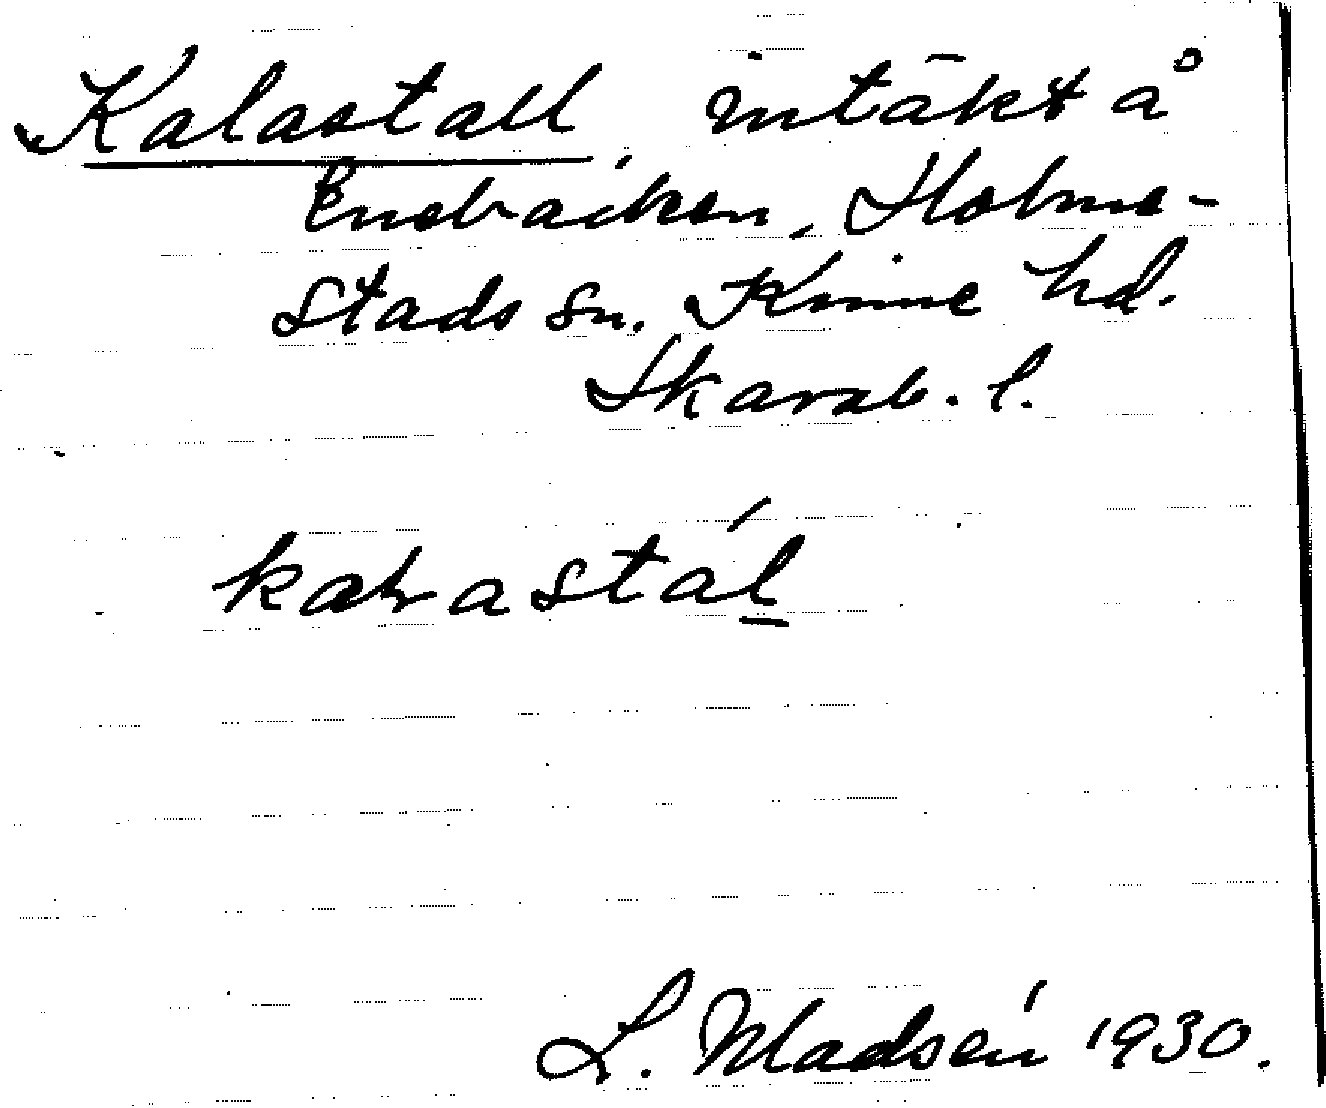 Kalastall, intäkt å
Enebacken, Holme-
stads sn. Kinne hd.
Skarab. l.
kaLastál
L. Madsén 1930.